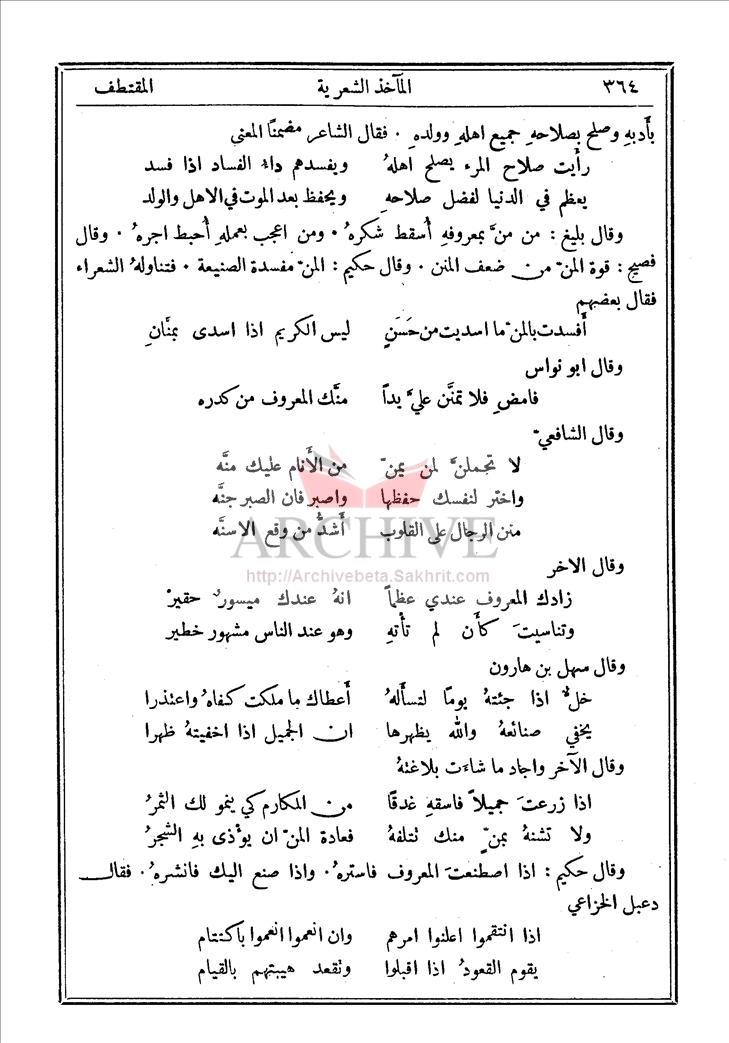 ٣٦٤ المآخذ الشعرية المقتطف
بأدبهِ وصلح بصلاحهِ جميع اهلهِ وولدهِ . فقال الشاعر مضمنًا المعنى
رأيت صلاح المرء يصلح اهلهُ ويفسدهم داءُ الفساد اذا فسد
يعظم في الدنيا لفضل صلاحهِ ويحفظ بعد الموت في الاهل والولد
وقال بليغ : من منَّ بمعروفهِ أسقط شكرهُ . ومن اعجب بعملهِ أحبط اجرهُ . وقال
فصيح : قوة المنّ من ضعف المنن . وقال حكيم : المنّ مفسدة الصنيعة . فتناولهُ الشعراء
فقال بعضهم
أفسدت بالمنّ ما اسديت من حَسَنٍ ليس الكريم اذا اسدى بمنَّانِ
وقال ابو نواس
فامضِ فلا تمنَّن عليَّ يداً منَّك المعروف من كدره
وقال الشافعيّ
لا تحملنَّ لمن يمنّ من الأنام عليك منَّه
واختر لنفسك حفظها واصبر فان الصبر جنَّه
منن الرجال على القلوب أشدُّ من وقع الاسنَّه
ARCHIVE
http://Archivebeta.Sakhrit.com
وقال الاخر
زادك المعروف عندي عظماً انهُ عندك ميسورٌ حقيرْ
وتناسيتَ كأن لم تأتهِ وهو عند الناس مشهور خطير
وقال سهل بن هارون
خلٌّ اذا جئتهُ يومًا لتسألهُ أعطاك ما ملكت كفاهُ واعتذرا
يخفي صنائعهُ والله يظهرها ان الجميل اذا اخفيتهُ ظهرا
وقال الآخر واجاد ما شاءَت بلاغتهُ
اذا زرعتَ جميلاً فاسقهِ غدقًا من المكارم كي ينمو لك الثمرُ
ولا تشنهُ بمنٍّ منك تتلفهُ فعادة المنّ ان يوٴذى بهِ الشجرُ
وقال حكيم : اذا اصطنعتَ المعروف فاسترهُ . واذا صنع اليك فانشرهُ . فقال
دعبل الخزاعي
اذا انتقموا اعلنوا امرهم وان انعموا انعموا باكتتام
يقوم القعودُ اذا اقبلوا وتقعد هيبتهم بالقيام